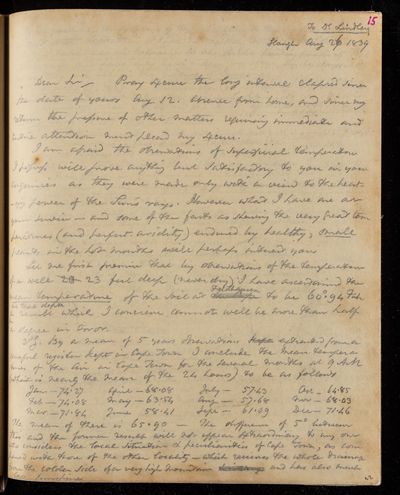 15
To Dr Lindley
Slough Aug 26/1839
Dear Sir, Pray excuse the long interval elapsed since
the date of yours Aug 12. Absence from home, and since my
return the pressure of other matters requiring immediate and
entire attention must plead my excuse.
I am afraid the observations of superficial temperature
I possess will prove anything but satisfactory to you in your
inquiries as they were made only with a view to the heat-
ing power of the Sun's rays. However what I have are at
your service - and some of the facts as shewing the very great tem
peratures (and perfect aridity) endured by healthy, small
plants, in the hot months will perhaps interest you
Let me first premise that by observations of the temperature
of a well 23 feet deep (never dry) I have ascertained the
mean temperature of the soil at to be 60°.94 Fah
at that depth
a result which I conceive cannot well be more than half
a degree in error.
2dly. By a mean of 5 years observations extracted from a
careful register kept in Cape Town I conclude the mean tempera
tures of the air in Cape Town for the several months at 9 AM
(which is nearly the mean of the 24 hours) to be as follows
Jan - 74.27 April - 68.08 July - 57.43 Oct - 64.85
Feb - 74.28 May - 63.54 Aug - 57.68 Nov - 68.03
Mar - 71.84 June 58.41 Sept - 61.09 Dec - 71.46
The mean of these is 65°.90 - The difference of 5° between
this and the former result will not appear extraordinary to any one
who considers the local situation & peculiarities of Cape Town, as com
pared with those of the other locality - which receives the whole drainage
from the colder side of a very high mountain and has also much